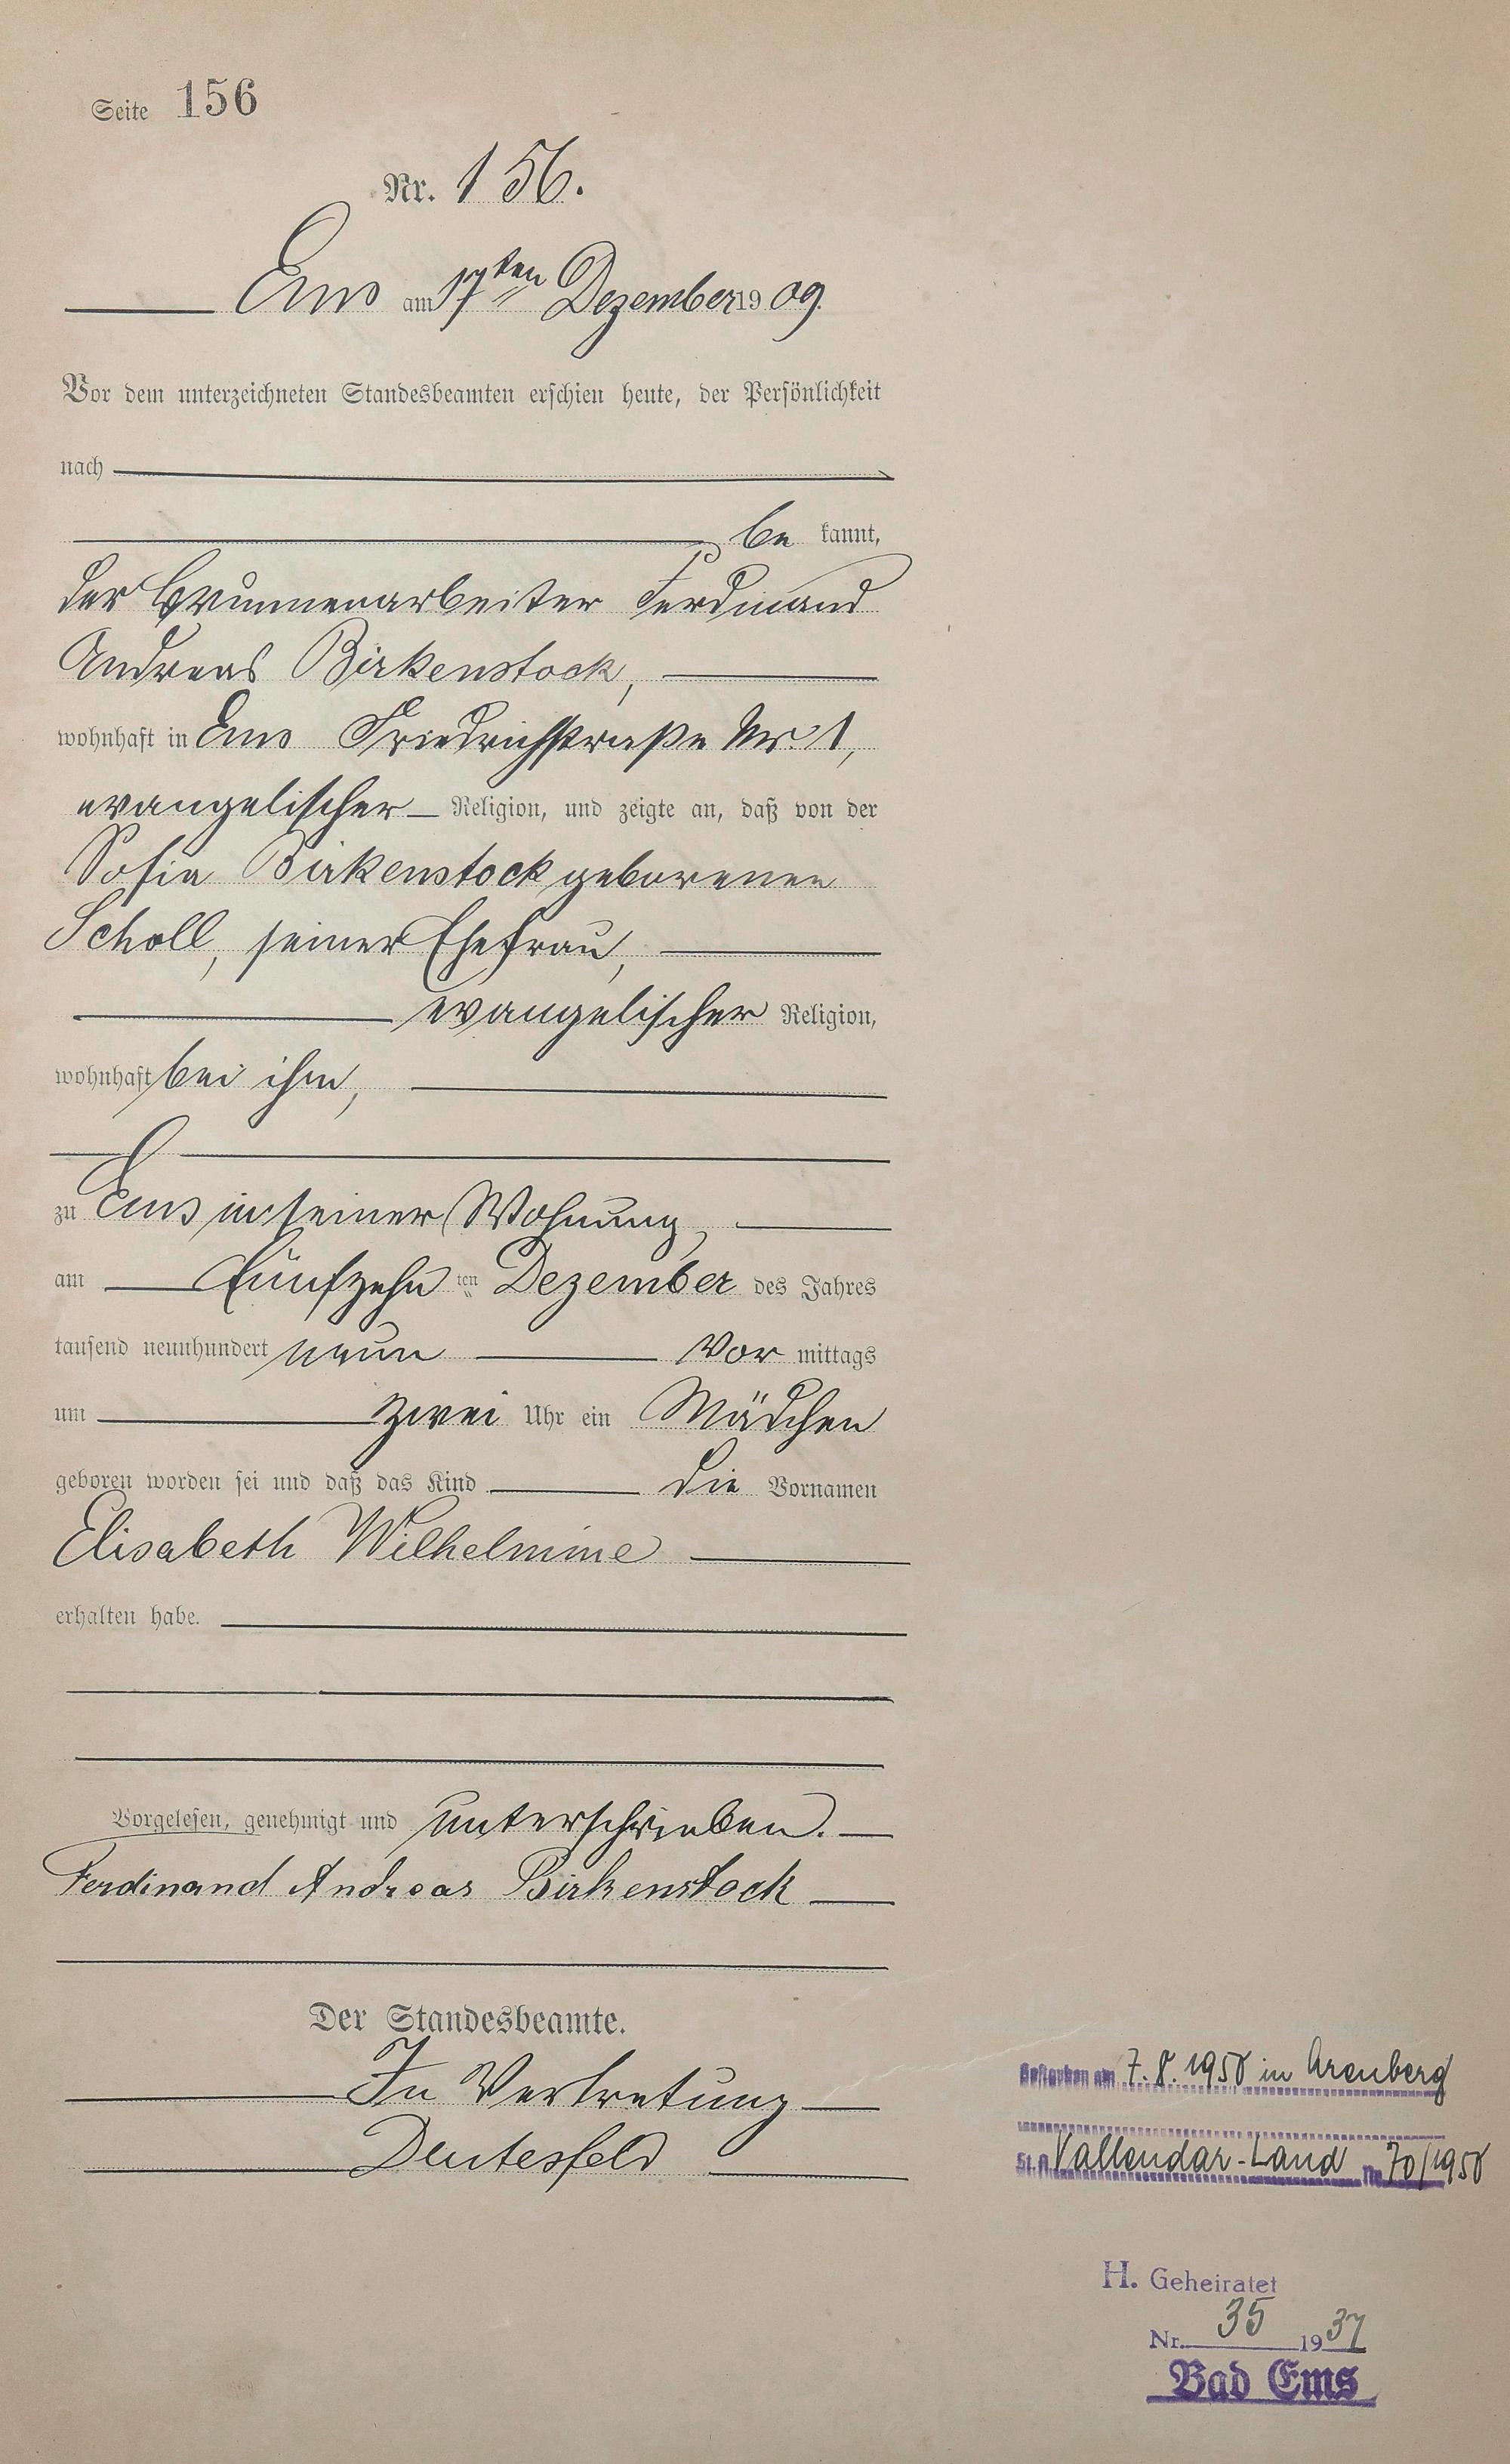 Seite 156
Nr. 156.
Ems am 17ten Dezember 1909.
Vor dem unterzeichneten Standesbeamten erschien heute, der Persönlichkeit
nach
be kannt,
der Brunnenarbeiter Ferdinand
Andreas Birkenstock,
wohnhaft in Ems Friedrichstraße Nr. 1,
evangelischer Religion, und zeigte an, daß von der
Sofia Birkenstock geborenen
Scholl, seiner Ehefrau,
evangelischer Religion,
wohnhaft bei ihm,
zu Ems in seiner Wohnung,
am fünfzehn ten Dezember des Jahres
tausend neunhundert neun Vor mittags
um zwei Uhr ein Mädchen
geboren worden sei und daß das Kind die Vornamen
Elisabeth Wilhelmine
erhalten habe.
Vorgelesen, genehmigt und unterschrieben.
Ferdinand Andreas Birkenstock
Der Standesbeamte.
In Vertretung
Deutesfeld
Gestorben am 7.8.1958 in Arenberg
St.A. Vallendar-Land Nr. 70/1958
H. Geheiratet
Nr. 35 1937
Bad Ems